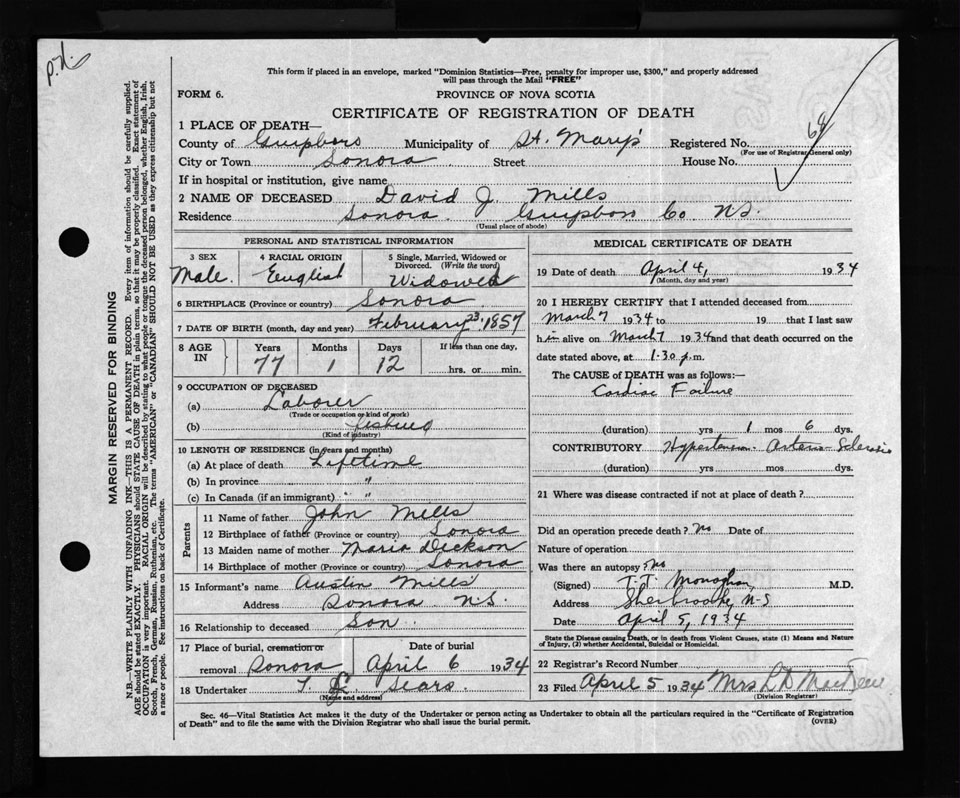 p.d.
This form if placed in an envelope, marked "Dominion Statistics—Free, penalty for improper use, $300," and properly addressed
will pass through the Mail "FREE"
FORM 6. PROVINCE OF NOVA SCOTIA
CERTIFICATE OF REGISTRATION OF DEATH
1 PLACE OF DEATH—
County of Guysboro Municipality of St. Mary's Registered No.
(For use of Registrar General only)
City or Town Sonora Street House No.
If in hospital or institution, give name
2 NAME OF DECEASED David J. Mills
Residence Sonora Guysboro Co N.S.
(Usual place of abode)
PERSONAL AND STATISTICAL INFORMATION
3 SEX 4 RACIAL ORIGIN 5 Single, Married, Widowed or
Divorced. (Write the word)
Male. English Widowed
6 BIRTHPLACE (Province or country) Sonora
7 DATE OF BIRTH (month, day and year) February 23, 1857
8 AGE IN Years Months Days If less than one day,
77 1 12 hrs. or min.
9 OCCUPATION OF DECEASED
(a) Laborer
(Trade or occupation or kind of work)
(b) fishing
(Kind of industry)
10 LENGTH OF RESIDENCE (in years and months)
(a) At place of death Lifetime
(b) In province "
(c) In Canada (if an immigrant) " "
Parents
11 Name of father John Mills
12 Birthplace of father (Province or country) Sonora
13 Maiden name of mother Maria Dickson
14 Birthplace of mother (Province or country) Sonora
15 Informant's name Austin Mills
Address Sonora N.S.
16 Relationship to deceased Son
17 Place of burial, cremation or Date of burial
removal Sonora April 6 1934
18 Undertaker T. Sears
(Name and address)
MEDICAL CERTIFICATE OF DEATH
19 Date of death April 4, 1934
(Month, day and year)
20 I HEREBY CERTIFY that I attended deceased from
March 7 1934 to 19 that I last saw
him alive on March 7 1934 and that death occurred on the
date stated above, at 1.30 p.m.
The CAUSE of DEATH was as follows:—
Cardiac Failure
(duration) yrs 1 mos 6 dys.
CONTRIBUTORY Hypertension. Arterio Sclerosis
(duration) yrs mos dys.
21 Where was disease contracted if not at place of death?
Did an operation precede death? No Date of
Nature of operation
Was there an autopsy? No
(Signed) T. T. Monaghan M.D.
Address Sherbrooke, N.S
Date April 5, 1934
State the Disease causing Death, or in death from Violent Causes, state (1) Means and Nature
of Injury, (2) whether Accidental, Suicidal or Homicidal.
22 Registrar's Record Number
23 Filed April 5 1934 Mrs
(Division Registrar)
Sec. 46—Vital Statistics Act makes it the duty of the Undertaker or person acting as Undertaker to obtain all the particulars required in the "Certificate of Registration
of Death" and to file the same with the Division Registrar who shall issue the burial permit. (OVER)
MARGIN RESERVED FOR BINDING
N.B.—WRITE PLAINLY WITH UNFADING INK—THIS IS A PERMANENT RECORD. Every item of information should be carefully supplied.
AGE should be stated EXACTLY. PHYSICIANS should STATE CAUSE OF DEATH in plain terms, so that it may be properly classified. Exact statement of
OCCUPATION is very important. RACIAL ORIGIN will be described by stating to what people or tongue the deceased person belonged, whether English, Irish,
Scotch, French, German, Russian, Ruthenian, etc. The terms "AMERICAN" or "CANADIAN" SHOULD NOT BE USED as they express citizenship but not
a race or people. See instructions on back of Certificate.